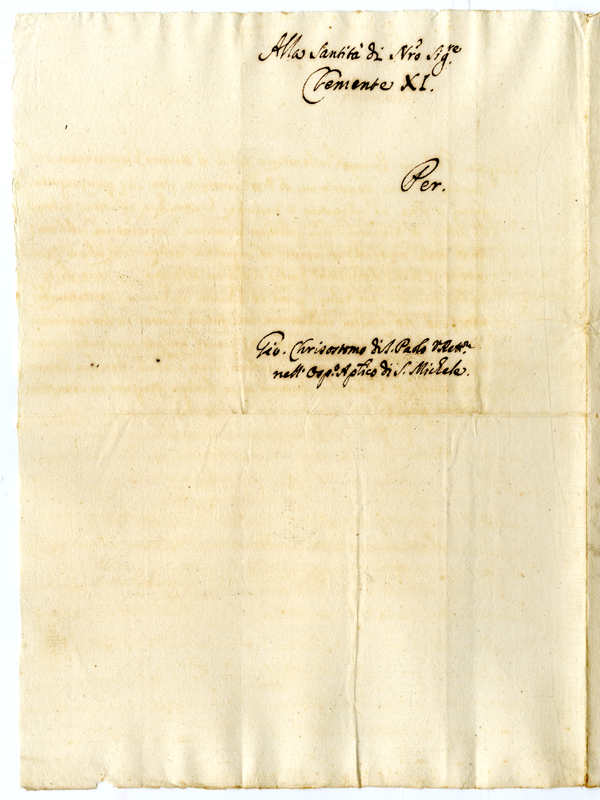 Alla Santità di Nro Sigre
Clemente XI.
Per.
Gio. Chrisostomo di S. Paolo
nell' Ospo Aplico di S. Michele.